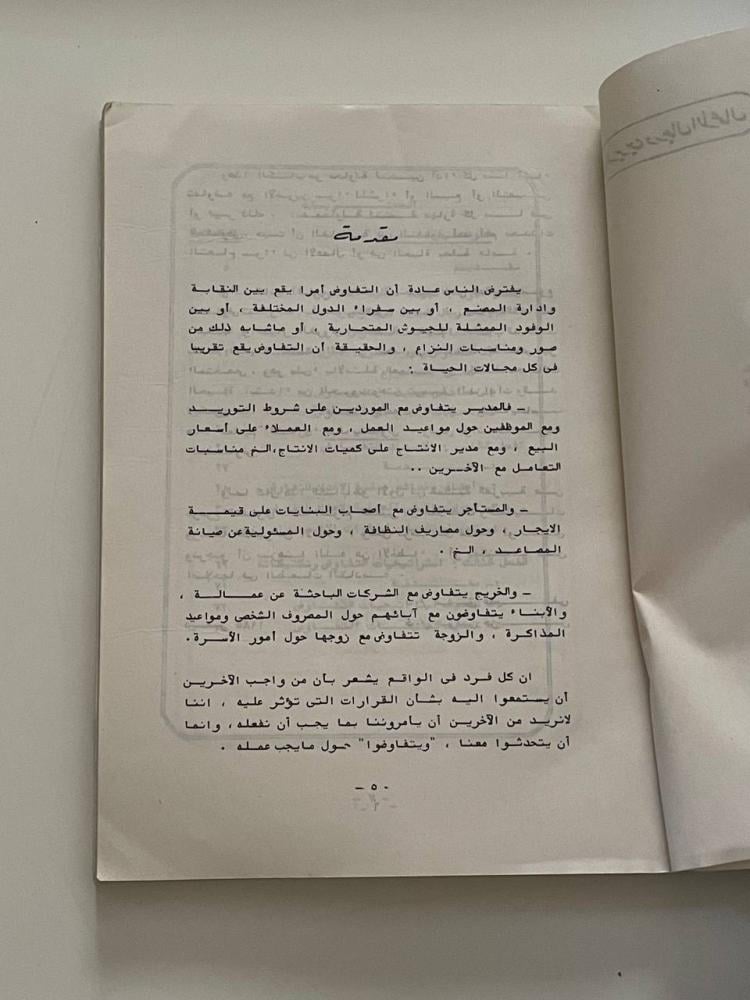 مقدمة
يفترض الناس عادة أن التفاوض أمرا يقع بين النقابة
وادارة المصنع ، أو بين سفراء الدول المختلفة ، أو بين
الوفود الممثلة للجيوش المتحاربة ، أو ماشابه ذلك من
صور ومناسبات النزاع ، والحقيقة أن التفاوض يقع تقريبا
فى كل مجالات الحياة :
ـ فالمدير يتفاوض مع الموردين على شروط التوريد
ومع الموظفين حول مواعيد العمل ، ومع العملاء على أسعار
البيع ، ومع مدير الانتاج على كميات الانتاج،الخ مناسبات
التعامل مع الآخرين ..
ـ والمستأجر يتفاوض مع أصحاب البنايات على قيمة
الايجار ، وحول مصاريف النظافة ، وحول المسئولية عن صيانة
المصاعد ، الخ .
ـ والخريج يتفاوض مع الشركات الباحثة عن عمالة ،
والأبناء يتفاوضون مع آبائهم حول المصروف الشخصى ومواعيد
المذاكرة ، والزوجة تتفاوض مع زوجها حول أمور الأسرة.
ان كل فرد فى الواقع يشعر بأن من واجب الآخرين
أن يستمعوا اليه بشأن القرارات التى تؤثر عليه ، اننا
لانريد من الآخرين أن يأمروننا بما يجب أن نفعله، وانما
أن يتحدثوا معنا ، "ويتفاوضوا" حول مايجب عمله .
ـ ٥ ـ